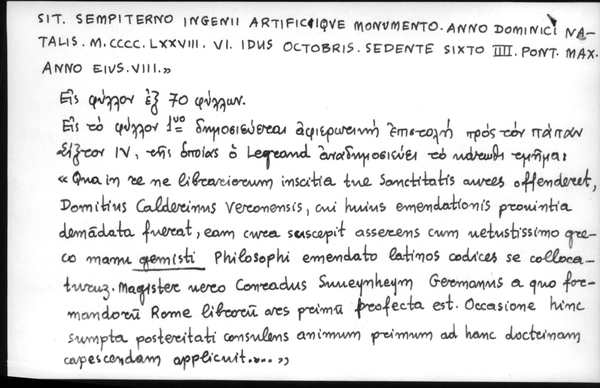 SIT. SEMPITERNO INGENII ARTIFICIIQVE MONUMENTO. ANNO DOMINICI NA-
TALIS. M.CCCC.LXXVIII. VI. IDUS OCTOBRIS. SEDENTE SIXTO IIII. PONT. MAX.
ANNO EIUS. VIII.»
Εἰς φύλλον ἐξ 70 φύλλων.
Εἰς τὸ φύλλον 1ον δημοσιεύεται ἀφιερωτικὴ ἐπιστολὴ πρὸς τὸν πάπαν
Σίξτον IV, τῆς ὁποίας ὁ Legrand ἀναδημοσιεύει τὸ κάτωθι τμῆμα:
«Qua in re ne librariorum inscitia tue Sanctitatis aures offenderet,
Domitius Calderinus Veronensis, cui huius emendationis prouintia
demādata fuerat, eam cura suscepit asserens cum uetustissimo gre-
co manu gemisti Philosophi emendato latinos codices se colloca-
turuz. Magister uero Conradus Suueynheym Germanus a quo for-
mandorū Rome librorū ars primū profecta est. Occasione hinc
sumpta posteritati consulens animum primum ad hanc doctrinam
capescendam applicuit.....»